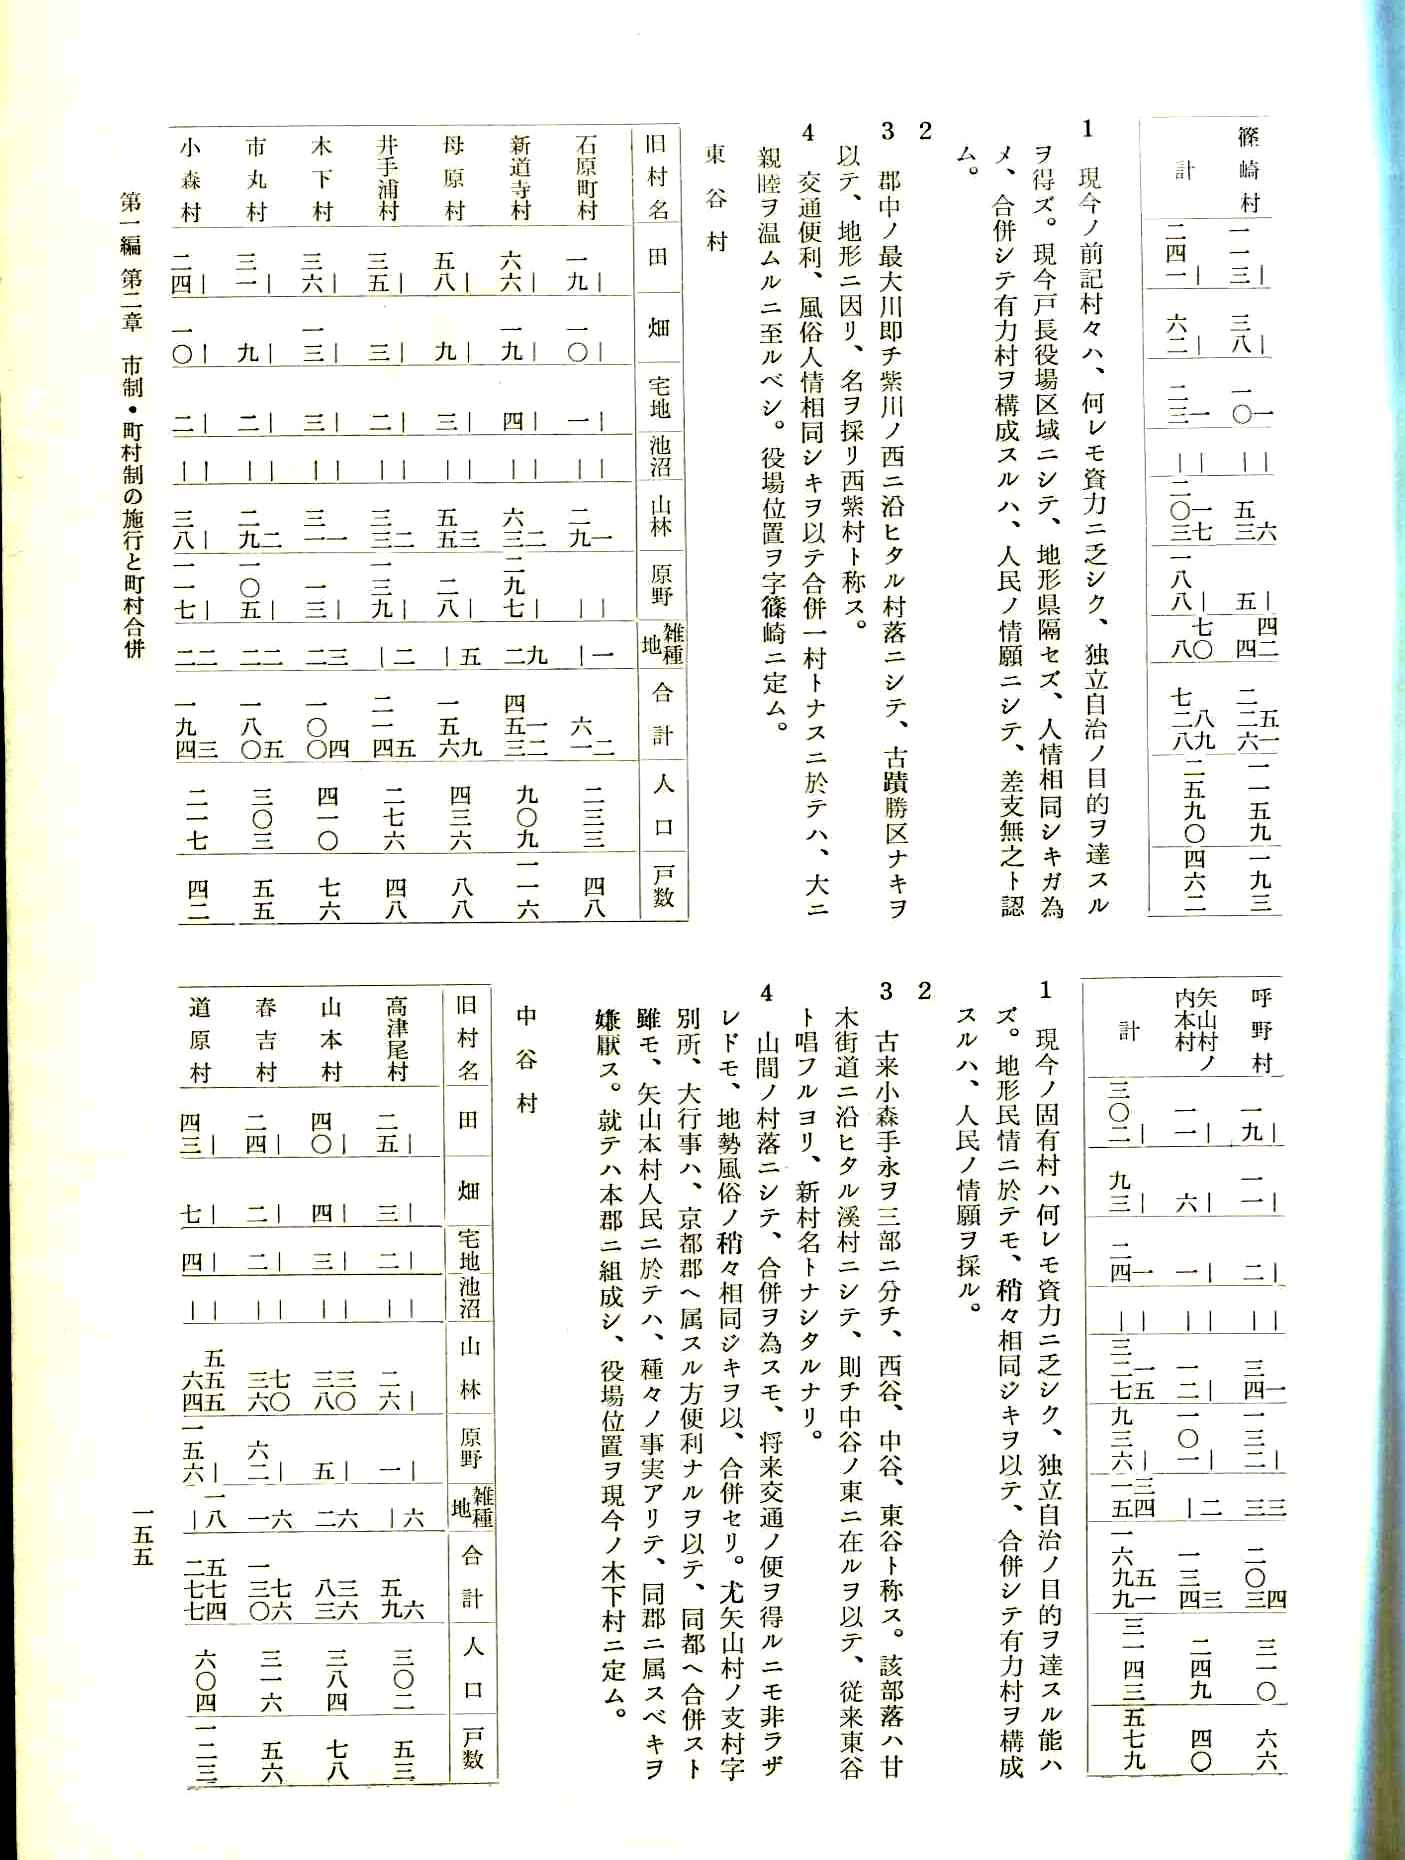 篠崎村 ― 一一三 ― 三八 一 一〇 ― ― 六 五三 ― 五 四二 四 五一 二二六 一一五九 一九三
計 ― 二四一 ― 六二 一 二三 ― ― 一七 二〇三 ― 一八八 七〇 八 八九 七二八 二五九〇 四六二
1 現今ノ前記村々ハ、何レモ資力ニ乏シク、独立自治ノ目的ヲ達スル
ヲ得ズ。現今戸長役場区域ニシテ、地形県隔セズ、人情相同シキガ為
メ、合併シテ有力村ヲ構成スルハ、人民ノ情願ニシテ、差支無之ト認
ム。
2
3 郡中ノ最大川即チ紫川ノ西ニ沿ヒタル村落ニシテ、古蹟勝区ナキヲ
以テ、地形ニ因リ、名ヲ採リ西紫村ト称ス。
4 交通便利、風俗人情相同シキヲ以テ合併一村トナスニ於テハ、大ニ
親睦ヲ温ムルニ至ルベシ。役場位置ヲ字篠崎ニ定ム。
東谷村
旧村名 田 畑 宅地 池沼 山林 原野 雑種地 合計 人口 戸数
石原町村 ― 一九 ― 一〇 ― 一 ― ― 一 二九 ― ― 一 ― 二 六一 二三三 四八
新道寺村 ― 六六 ― 一九 ― 四 ― ― 二 六三 ― 二九七 九 二 一二 四五三 九〇九 一一六
母原村 ― 五八 ― 九 ― 三 ― ― 三 五五 ― 二八 五 ― 九 一五六 四三六 八八
井手浦村 ― 三五 ― 三 ― 二 ― ― 二 三三 ― 一三九 二 ― 五 二一四 二七六 四八
木下村 ― 三六 ― 一三 ― 三 ― ― 一 三一 ― 一三 三 二 四 一〇〇 四一〇 七六
市丸村 ― 三一 ― 九 ― 二 ― ― 二 二九 ― 一〇五 二 二 五 一八〇 三〇三 五五
小森村 ― 二四 ― 一〇 ― 二 ― ― ― 三八 ― 一一七 二 二 三 一九四 二一七 四二
呼野村 ― 一九 ― 一一 ― 二 ― ― 一 三四 ― 一三二 三 三 四 二〇三 三一〇 六六
矢山村ノ内本村 ― 一一 ― 六 ― 一 ― ― ― 一二 ― 一〇一 二 ― 三 一三四 二四九 四〇
計 ― 三〇二 ― 九三 一 二四 ― ― 一五 三二七 ― 九三六 三四 一五 五一 一六九九 三一四三 五七九
1 現今ノ固有村ハ何レモ資力ニ乏シク、独立自治ノ目的ヲ達スル能ハ
ズ。地形民情ニ於テモ、稍々相同ジキヲ以テ、合併シテ有力村ヲ構成
スルハ、人民ノ情願ヲ採ル。
2
3 古来小森手永ヲ三部ニ分チ、西谷、中谷、東谷ト称ス。該部落ハ甘
木街道ニ沿ヒタル溪村ニシテ、則チ中谷ノ東ニ在ルヲ以テ、従来東谷
ト唱フルヨリ、新村名トナシタルナリ。
4 山間ノ村落ニシテ、合併ヲ為スモ、将来交通ノ便ヲ得ルニモ非ラザ
レドモ、地勢風俗ノ稍々相同ジキヲ以、合併セリ。尤矢山村ノ支村字
別所、大行事ハ、京都郡ヘ属スル方便利ナルヲ以テ、同郡ヘ合併スト
雖モ、矢山本村人民ニ於テハ、種々ノ事実アリテ、同郡ニ属スベキヲ
嫌厭ス。就テハ本郡ニ組成シ、役場位置ヲ現今ノ木下村ニ定ム。
中谷村
旧村名 田 畑 宅地 池沼 山林 原野 雑種地 合計 人口 戸数
高津尾村 ― 二五 ― 三 ― 二 ― ― ― 二六 ― 一 六 ― 六 五九 三〇二 五三
山本村 ― 四〇 ― 四 ― 三 ― ― 三〇 三八 ― 五 六 二 三六 八三 三八四 七八
春吉村 ― 二四 ― 二 ― 二 ― ― 七〇 三六 ― 六二 六 一 七六 一三〇 三一六 五六
道原村 ― 四三 ― 七 ― 四 ― ― 五五五 六四 ― 一五六 一八 ― 五七四 二七七 六〇四 一二三
第一編 第二章 市制・町村制の施行と町村合併
一五五